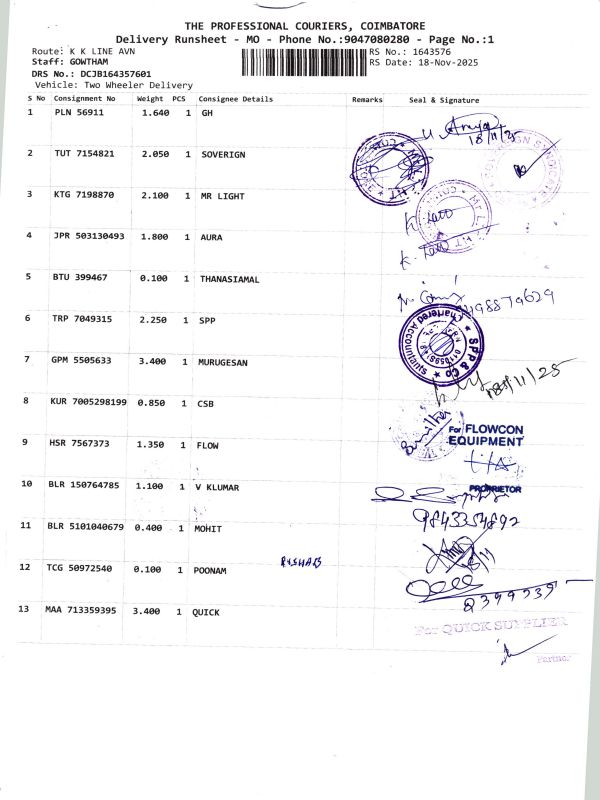 THE PROFESSIONAL COURIERS, COIMBATORE
Delivery Runsheet - MO - Phone No.:9047080280 - Page No.:1
Route: K K LINE AVN RS No.: 1643576
Staff: GOWTHAM RS Date: 18-Nov-2025
DRS No.: DCJB164357601
Vehicle: Two Wheeler Delivery
S No Consignment No Weight PCS Consignee Details Remarks Seal & Signature
1 PLN 56911 1.640 1 GH
18/11/25
2 TUT 7154821 2.050 1 SOVERIGN
3 KTG 7198870 2.100 1 MR LIGHT
MR LIGHT
4 JPR 503130493 1.800 1 AURA
5 BTU 399467 0.100 1 THANASIAMAL
6 TRP 7049315 2.250 1 SPP
SPP & CO
Chartered Accountants
7 GPM 5505633 3.400 1 MURUGESAN
18/11/25
8 KUR 7005298199 0.850 1 CSB
For FLOWCON
EQUIPMENT
9 HSR 7567373 1.350 1 FLOW
PROPRIETOR
10 BLR 150764785 1.100 1 V KLUMAR
9843354892
11 BLR 5101040679 0.400 1 MOHIT
12 TCG 50972540 0.100 1 POONAM RISHAB
13 MAA 713359395 3.400 1 QUICK
For QUICK SUPPLIER
Partner